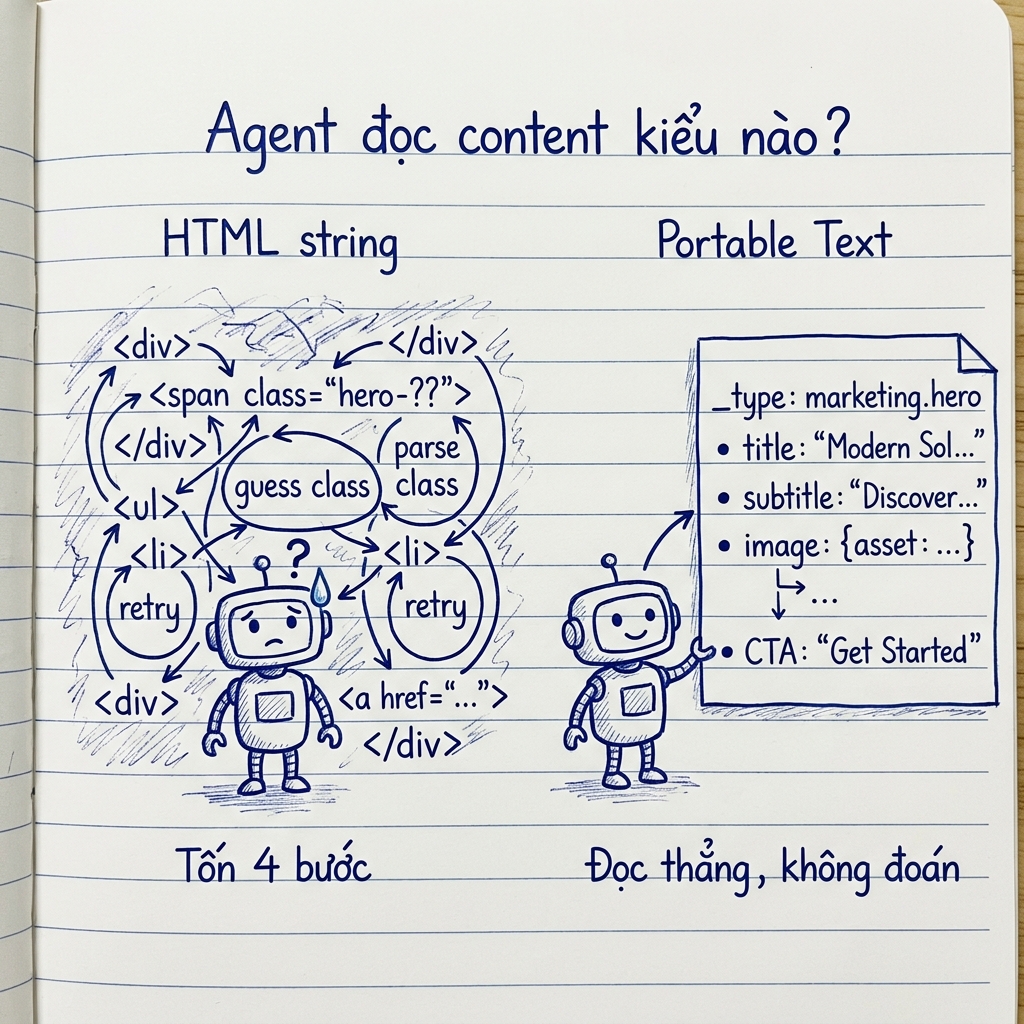 Agent đọc content kiểu nào?
HTML string
<div>
</div>
<span class="hero-??">
</div>
parse
class
guess class
<ul>
<li>
?
<li>
retry
retry
<div>
<a href="...">
</div>
Tốn 4 bước
Portable Text
_type: marketing.hero
• title: "Modern Sol..."
• subtitle: "Discover..."
• image: {asset: ...}
...
• CTA: "Get Started"
Đọc thẳng, không đoán